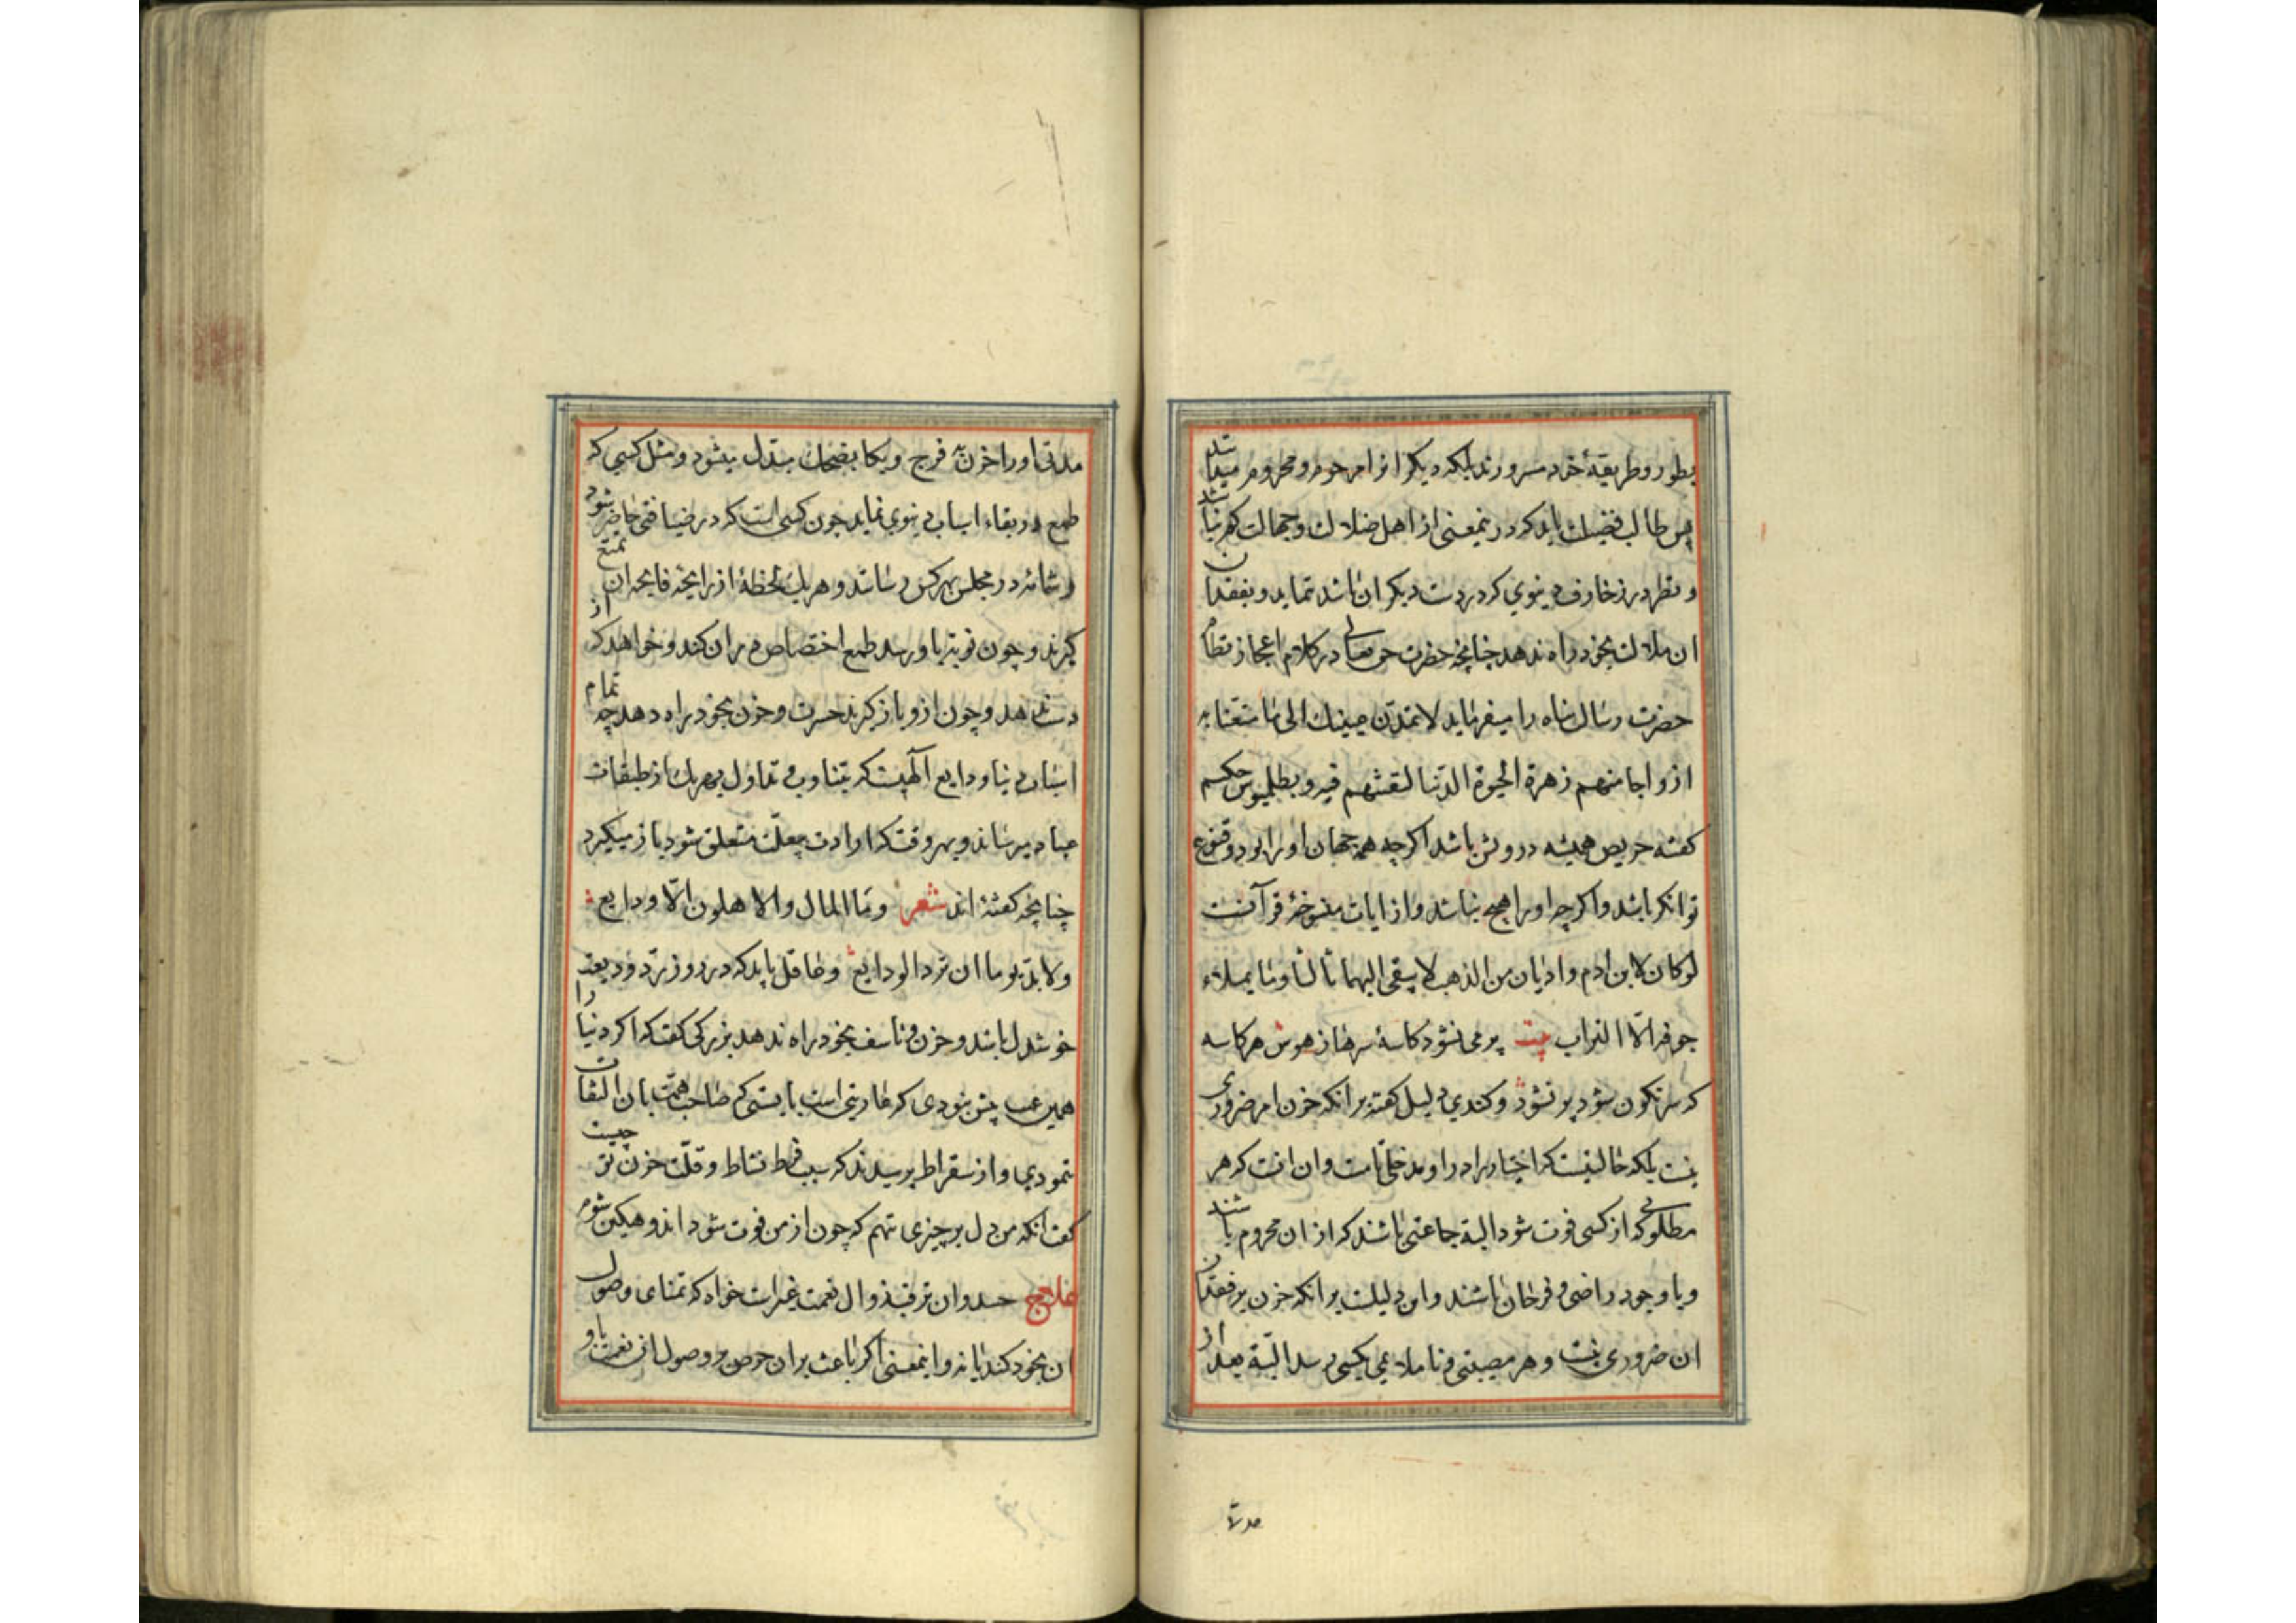 بطور و طریقهٔ خرد مسرورند بلکه دیگرانرا مرحوم و محروم میدانند
پس طالب فضیلت باید که درینمعنی از اهل ضلالت و جهالت کمتر نباشد
و نظر در زخارف دنیوی که در دست دیگران باشد ننماید و بفقدان
ان ملالت بخود راه ندهد چنانچه حضرت حق تعالی در کلام اعجاز نظام
حضرت رسالت پناه را میفرماید لا تمدّن عینیك الی ما متّعنا به
ازواجا منهم زهرة الحیوة الدّنیا لنفتنهم فیه و بطلمیوس حکیم
کفته حریص همیشه درویش باشد اکرچه همه جهان اورا بود و قنوع
توانکر باشد واکرچه اورا هیچ نباشد و از ایات منسوخهٔ قرآنست
لو کان لابن ادم وادیان من الذهب لابتغی الیهما ثالثا و ما یملاء
جوفه الّا التراب بیت پر می نشود کاسهٔ سرها ز هوس هر کاسه
که سرنکون شود پر نشود و کندی دلیل کفته بر انکه حزن امر ضروری
نیست بلکه حالتیست که اختیار را در او مدخلی تامست و ان انست که هر
مطلوبی که از کسی فوت شود البته جماعتی باشند که از ان محروم باشند
و با وجود راضی و فرحان باشند و این دلیلست بر انکه حزن بر فقدان
ان ضروری نیست و هر مصیبتی و ناملایمی بکسی رسد البتّه بعد از
مدتی
مدتی اورا حزن به فرج و بکا بضحك مبدّل میشود و مثل کسی که
طمع در بقاء اسباب دنیوی نماید چون کسی است که در ضیافتی حاضر شود
و شمامهٔ در مجلس بهر کس رسانند و هر یك لحظهٔ از رایحهٔ فایحه ان تمتع
کیرند و چون نوبت باو رسد طمع اختصاص در ان کند و خواهد که از
دست ندهد و چون ازو باز کیرند حسرت و حزن بخود راه دهد چه تمام
اسباب دنیا ودایع آلهیست که بتناوب و تداول بهریك از طبقات
عباد میرساند و بهر وقت که ارادت بیعلّت متعلق شود باز میکیرد
چنانچه کفته اند شعر وما المال والاهلون الّا ودایع
ولابدّ یوما ان تردّ الودایع و عاقل باید که در روز ردّ ودیعت
خوشدل باشد و حزن و تاسف بخود راه ندهد بزرکی کفت که اکر دنیا را
همین عیب بیش نبودی که عاریتی است بایستی که صاحب همّت بان التفات
ننمودی و از سقراط پرسیدند که سبب فرط نشاط و قلّت حزن تو چیست
کفت انکه من دل بر چیزی ننهم که چون از من فوت شود اندوهکین شوم
علاج حسد و ان ترقب زوال نعمت غیرات خواه که تمنای وصول
ان بخود کند یا نه و اینمعنی اکر باعث بران حرص بر وصول ان نعمت باو